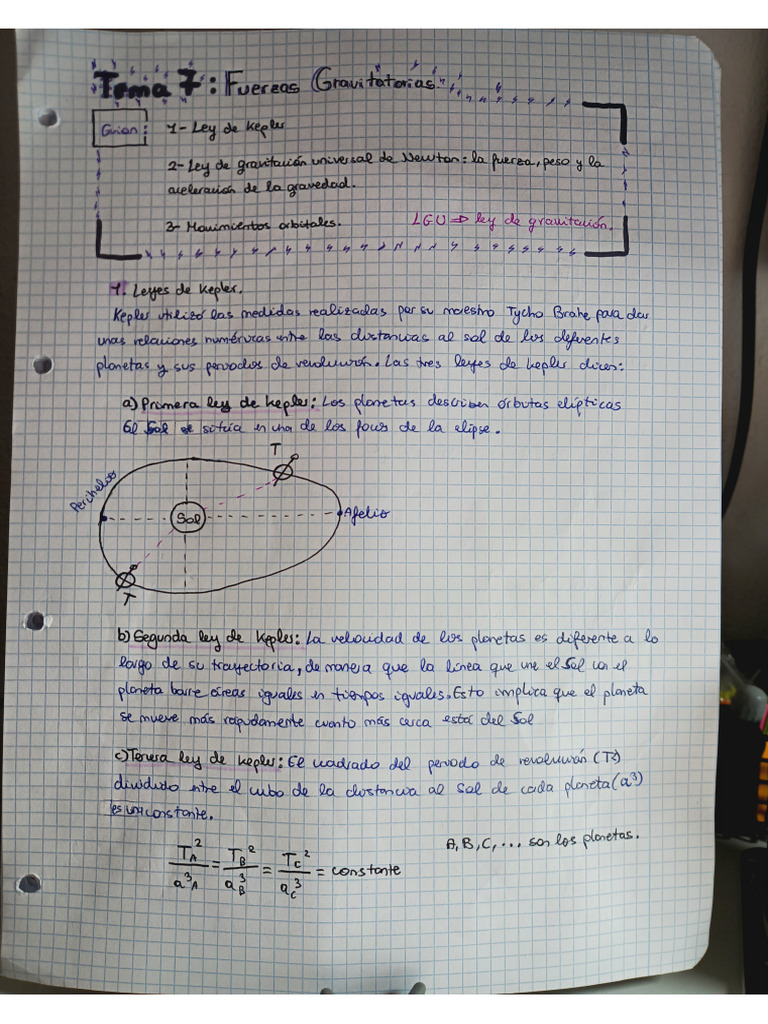 Tema 7: Fuerzas Gravitatorias.
Guion:
1- Ley de Kepler
2- Ley de gravitación universal de Newton: la fuerza, peso y la
aceleración de la gravedad.
3- Movimientos orbitales.
LGU => ley de gravitación.
1. Leyes de Kepler.
Kepler utilizó las medidas realizadas por su maestro Tycho Brahe para dar
unas relaciones numéricas entre las distancias al sol de los diferentes
planetas y sus periodos de revolución. Las tres leyes de Kepler dicen:
a) Primera ley de Kepler: Los planetas describen órbitas elípticas
El Sol se sitúa en uno de los focos de la elipse.
T
Perihelio
Sol
Afelio
T
b) Segunda ley de Kepler: La velocidad de los planetas es diferente a lo
largo de su trayectoria, de manera que la línea que une el Sol con el
planeta barre áreas iguales en tiempos iguales. Esto implica que el planeta
se mueve más rápidamente cuanto más cerca está del Sol
c) Tercera ley de Kepler: El cuadrado del periodo de revolución (T²)
dividido entre el cubo de la distancia al Sol de cada planeta (a³)
es una constante.
A, B, C, ... son los planetas.
T_A²/a³_A = T_B²/a_B³ = T_C²/a_C³ = constante